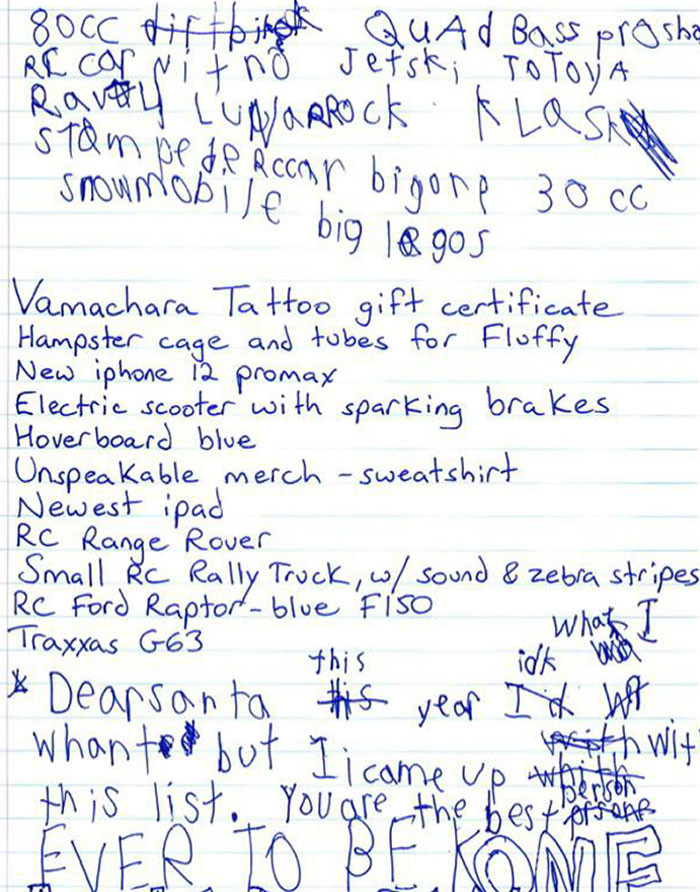 80cc dirtbike QuAd Bass prosho
RC car Nitro Jetski ToToyA
Rav4 LuNARROCK KLask
stampede RCcar bigone 30 cc
snowmobile
big legos
Vamachara Tattoo gift certificate
Hampster cage and tubes for Fluffy
New iphone 12 promax
Electric scooter with sparking brakes
Hoverboard blue
Unspeakable merch - sweatshirt
Newest ipad
RC Range Rover
Small RC Rally Truck, w/ sound & zebra stripes
RC Ford Raptor - blue F150
Traxxas G63
What I
this idk
* Dear santa this year Id
whanted but I i came up wit
person
this list. You are the best
EVER TO BE KOME